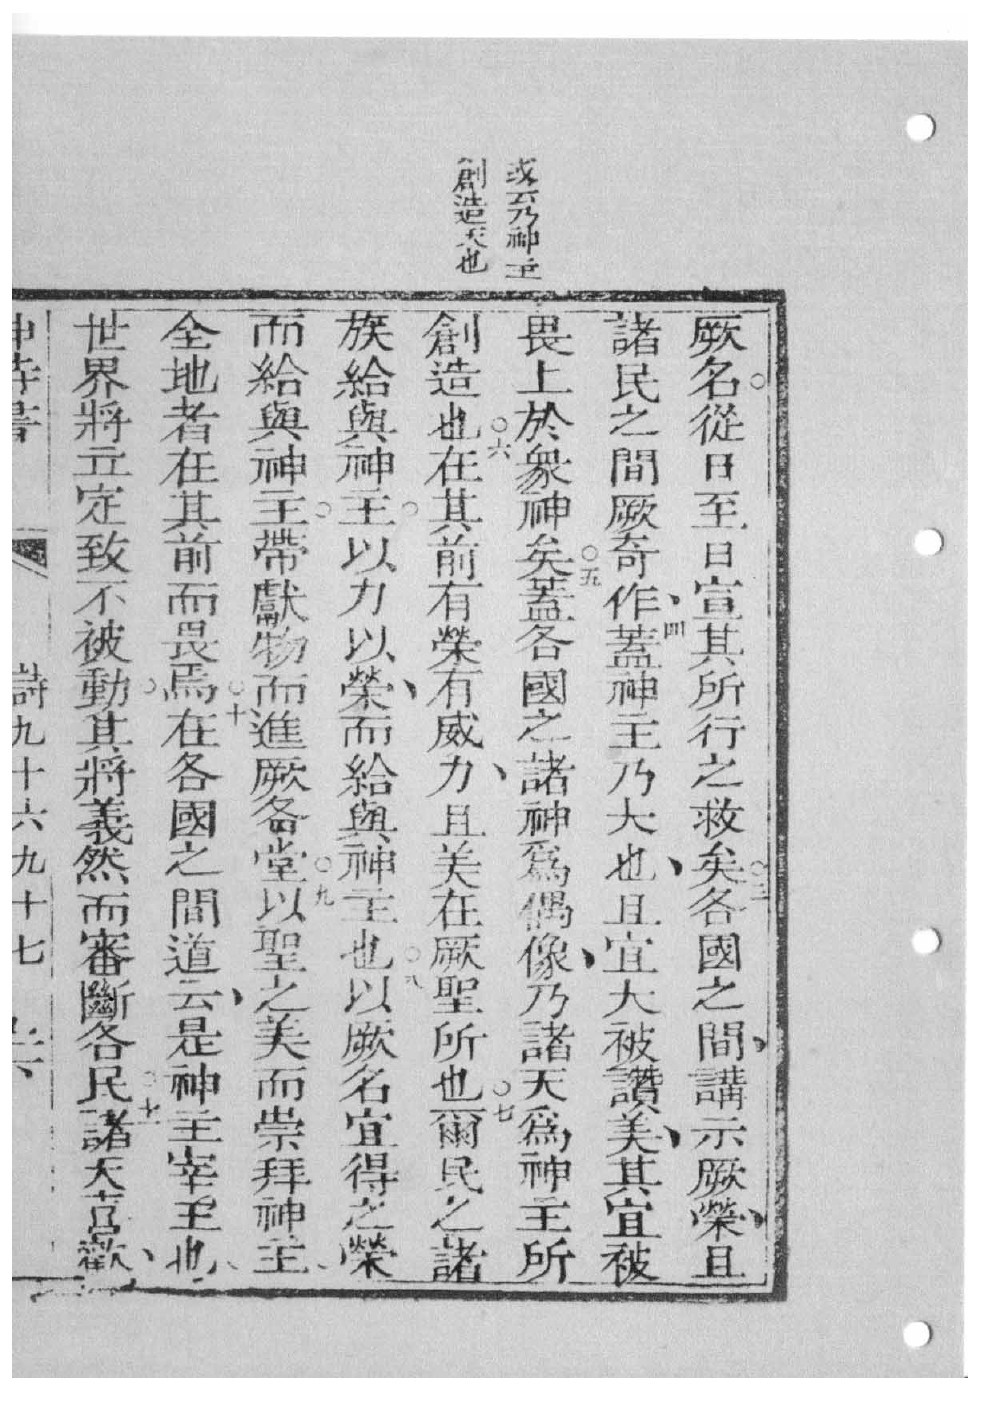 或云乃神主
創造天也
厥名○從日至日宣其所行之救矣○三各國之間、講示厥榮、且
諸民之間厥奇作、四蓋神主乃大也、且宜大被讚美、其宜被
畏上於衆神矣○五蓋各國之諸神爲偶像、乃諸天爲神主所
創造也○六在其前有榮有威力、且美在厥聖所也○七爾民之諸
族給與神主○以力以榮、而給與神主也○八以厥名宜得之榮
而給與神主○帶獻物而進厥各堂○九以聖之美而崇拜神主、
全地者在其前而畏焉○十在各國之間道云、是神主宰王也、
世界將立定致不被動○其將義然而審斷各民○十一諸天喜歡、
神詩書
詩九十六九十七